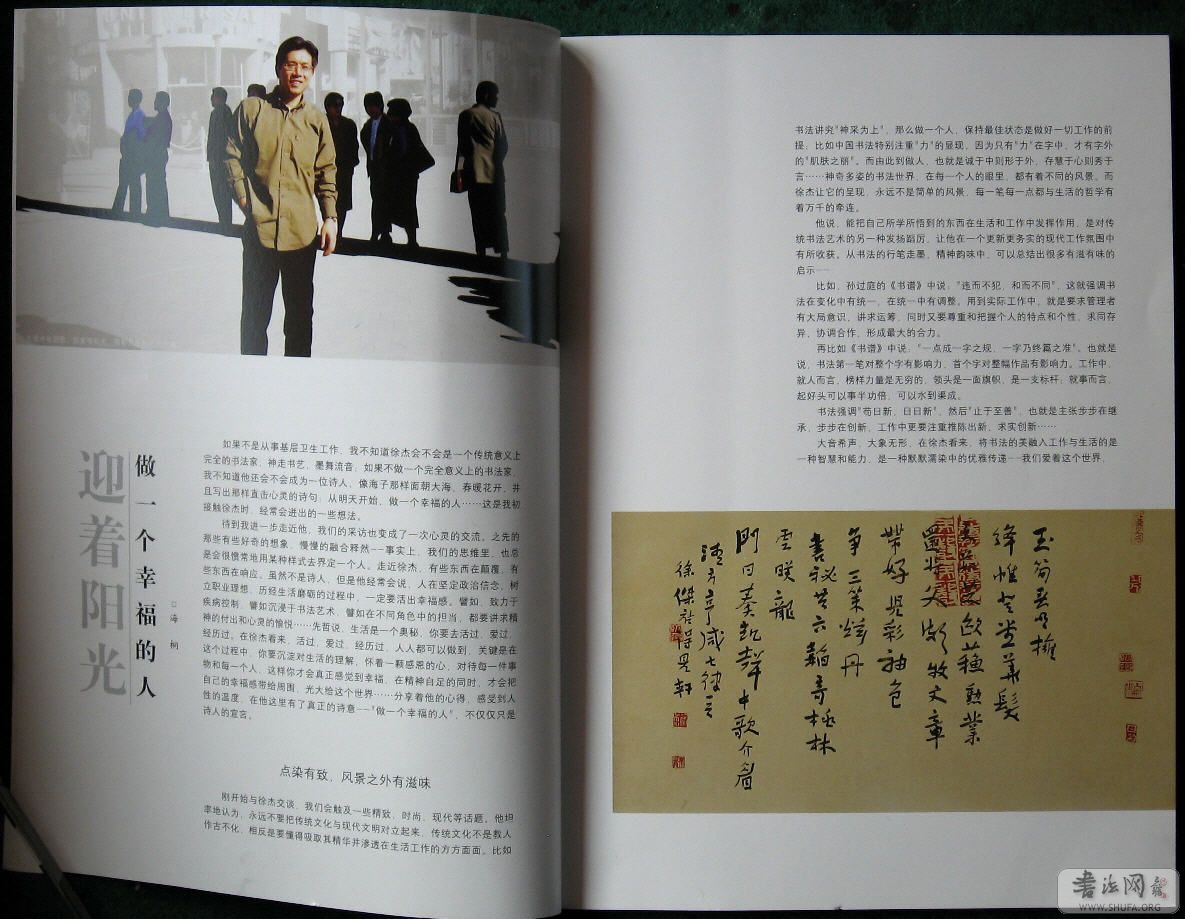 迎着阳光
做一个幸福的人
□海 桐
如果不是从事基层卫生工作，我不知道徐杰会不会是一个传统意义上
完全的书法家，神走书艺，墨舞流音，如果不做一个完全意义上的书法家，
我不知道他还会不会成为一位诗人，像海子那样面朝大海，春暖花开，并
且写出那样直击心灵的诗句：从明天开始，做一个幸福的人……这是我初
接触徐杰时，经常会迸出的一些想法。
待到我进一步走近他，我们的采访也变成了一次心灵的交流。之先的
那些有些好奇的想象，慢慢的融合释然--事实上，我们的思维里，也总
是会很惯常地用某种样式去界定一个人。走近徐杰，有些东西在颠覆，有
些东西在响应。虽然不是诗人，但是他经常会说，人在坚定政治信念、树
立职业理想、历经生活磨砺的过程中，一定要活出幸福感。譬如，致力于
疾病控制，譬如沉浸于书法艺术，譬如在不同角色中的担当，都要讲求精
神的付出和心灵的愉悦……先哲说，生活是一个奥秘，你要去活过，爱过，
经历过。在徐杰看来，活过，爱过，经历过，人人都可以做到，关键是在
这个过程中，你要沉淀对生活的理解，怀着一颗感恩的心，对待每一件事
物和每一个人，这样你才会真正感觉到幸福，在精神自足的同时，才会把
自己的幸福感带给周围，光大给这个世界……分享着他的心得，感受到人
性的温度，在他这里有了真正的诗意--"做一个幸福的人"，不仅仅只是
诗人的宣言。
点染有致，风景之外有滋味
刚开始与徐杰交谈，我们会触及一些精致、时尚、现代等话题。他坦
率地认为，永远不要把传统文化与现代文明对立起来，传统文化不是教人
作古不化，相反是要懂得吸取其精华并渗透在生活工作的方方面面。比如
书法讲究"神采为上"，那么做一个人，保持最佳状态是做好一切工作的前
提；比如中国书法特别注重"力"的显现，因为只有"力"在字中，才有字外
的"肌肤之丽"。而由此到做人，也就是诚于中则形于外，存慧于心则秀于
言……神奇多姿的书法世界，在每一个人的眼里，都有着不同的风景。而
徐杰让它的呈现，永远不是简单的风景，每一笔每一点都与生活的哲学有
着万千的牵连。
他说，能把自己所学所悟到的东西在生活和工作中发挥作用，是对传
统书法艺术的另一种发扬蹈厉，让他在一个更新更务实的现代工作氛围中
有所收获。从书法的行笔走墨，精神韵味中，可以总结出很多有滋有味的
启示--
比如，孙过庭的《书谱》中说："违而不犯，和而不同"，这就强调书
法在变化中有统一，在统一中有调整。用到实际工作中，就是要求管理者
有大局意识，讲求运筹，同时又要尊重和把握个人的特点和个性，求同存
异，协调合作，形成最大的合力。
再比如《书谱》中说："一点成一字之规，一字乃终篇之准"。也就是
说，书法第一笔对整个字有影响力，首个字对整幅作品有影响力。工作中，
就人而言，榜样力量是无穷的，领头是一面旗帜，是一支标杆；就事而言，
起好头可以事半功倍，可以水到渠成。
书法强调"苟日新，日日新"，然后"止于至善"，也就是主张步步在继
承，步步在创新，工作中更要注重推陈出新，求实创新……
大音希声，大象无形，在徐杰看来，将书法的美融入工作与生活的是
一种智慧和能力，是一种默默濡染中的优雅传递--我们爱着这个世界，
绛帷登堂华髮
带好児彩袖色
争三策燦丹
雲暎龍
徐傑
书法网
WWW.SHUFA.ORG